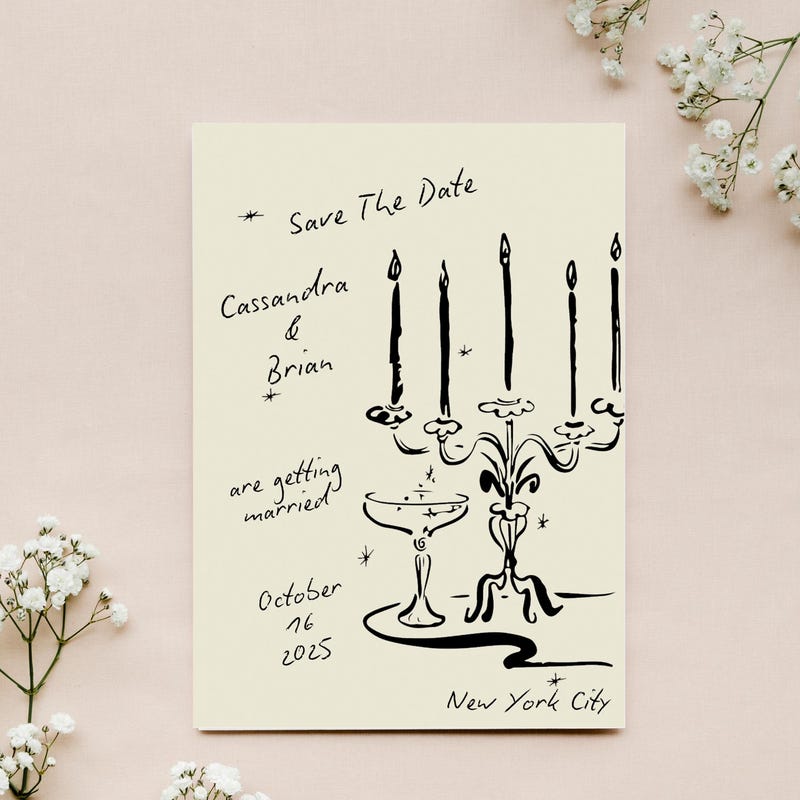 Save The Date
Cassandra
&
Brian
are getting
married
October
16
2025
New York City